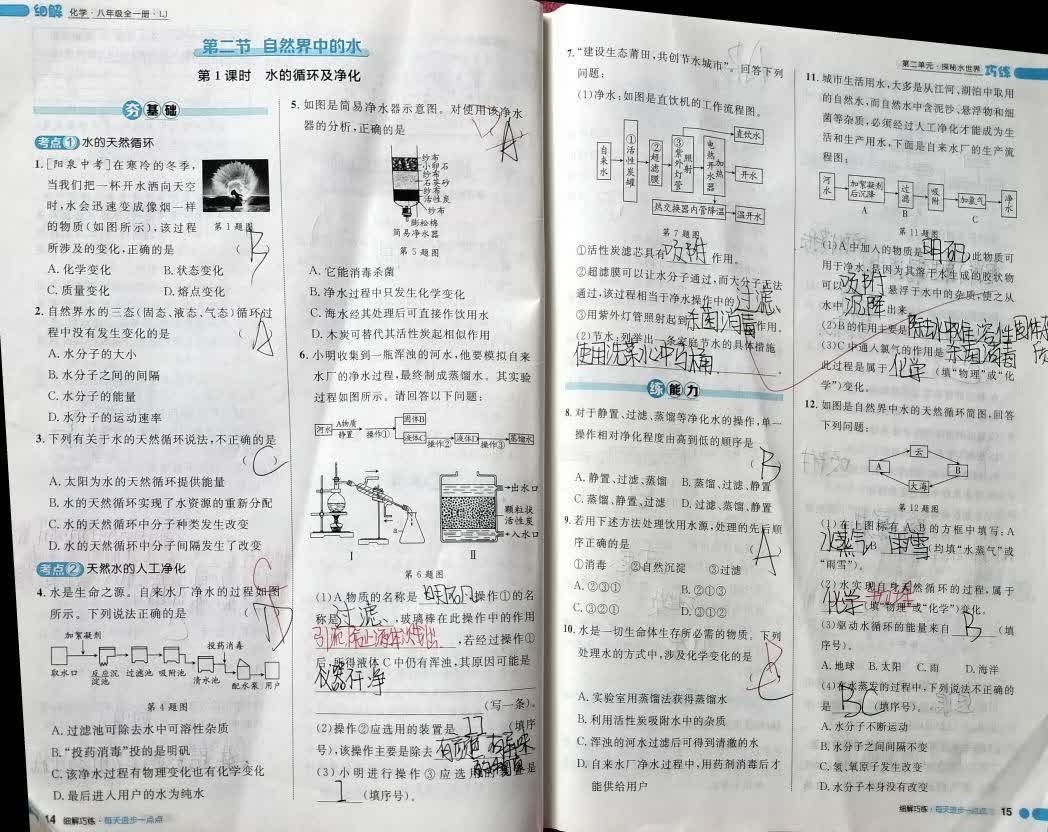 细解 化学·八年级全一册·LJ
第二节 自然界中的水
第1课时 水的循环及净化
夯基础
考点1 水的天然循环
1.[阳泉中考]在寒冷的冬季,
当我们把一杯开水洒向天空
时,水会迅速变成像烟一样
的物质(如图所示),该过程
第1题图
所涉及的变化,正确的是 ( B )
A.化学变化 B.状态变化
C.质量变化 D.熔点变化
2.自然界水的三态(固态、液态、气态)循环过
程中没有发生变化的是 ( A )
A.水分子的大小
B.水分子之间的间隔
C.水分子的能量
D.水分子的运动速率
3.下列有关于水的天然循环说法,不正确的是
( C )
A.太阳为水的天然循环提供能量
B.水的天然循环实现了水资源的重新分配
C.水的天然循环中分子种类发生改变
D.水的天然循环中分子间隔发生了改变
考点2 天然水的人工净化
C
4.水是生命之源。自来水厂净水的过程如图
所示。下列说法正确的是 ( D )
加絮凝剂 投药消毒
取水口 反应沉淀池 过滤池 吸附池 清水池 配水泵 用户
第4题图
A.过滤池可除去水中可溶性杂质
B.“投药消毒”投的是明矾
C.该净水过程有物理变化也有化学变化
D.最后进入用户的水为纯水
14 细解巧练·每天进步一点点
5.如图是简易净水器示意图。对使用该净水
器的分析,正确的是 ( A )
纱布
小卵石
纱布
石英砂
纱布
活性炭
纱布
膨松棉
简易净水器
第5题图
A.它能消毒杀菌
B.净水过程中只发生化学变化
C.海水经其处理后可直接作饮用水
D.木炭可替代其活性炭起相似作用
6.小明收集到一瓶浑浊的河水,他要模拟自来
水厂的净水过程,最终制成蒸馏水。其实验
过程如图所示。请回答以下问题:
河水 A物质 静置 操作① 固体B 液体C 操作② 液体D 操作③ 蒸馏水
a
出水口
颗粒状活性炭
入水口
Ⅰ Ⅱ
第6题图
(1)A物质的名称是 明矾 ,操作①的名
称是 过滤 ,玻璃棒在此操作中的作用
引流,防止液体溅出 ,若经过操作①
后,所得液体C中仍有浑浊,其原因可能是
仪器不干净
(写一条)。
(2)操作②应选用的装置是 II (填序
号),该操作主要是除去
(3)小明进行操作③应选用的装置是
I (填序号)。
第二单元·探秘水世界 巧练
7.“建设生态莆田,共创节水城市”。回答下列
问题:
(1)净水:如图是直饮机的工作流程图。
自来水 ①活性炭罐 ②超滤膜 ③紫外灯管 照射 电热开水器 加热 直饮水 开水
热交换器内管降温 温开水
第7题图
①活性炭滤芯具有 吸附 作用。
②超滤膜可以让水分子通过,而大分子无法
通过,该过程相当于净水操作中的 过滤 。
③用紫外灯管照射起到 杀菌消毒 作用。
(2)节水:列举出一条家庭节水的具体措施
使用洗菜水冲马桶 。
练能力
8.对于静置、过滤、蒸馏等净化水的操作,单一
操作相对净化程度由高到低的顺序是
( B )
A.静置、过滤、蒸馏 B.蒸馏、过滤、静置
C.蒸馏、静置、过滤 D.过滤、蒸馏、静置
9.若用下述方法处理饮用水源,处理的先后顺
序正确的是 ( A )
①消毒 ②自然沉淀 ③过滤
A.②③① B.②①③
C.③②① D.③①②
10.水是一切生命体生存所必需的物质。下列
处理水的方式中,涉及化学变化的是
( C )
A.实验室用蒸馏法获得蒸馏水
B.利用活性炭吸附水中的杂质
C.浑浊的河水过滤后可得到清澈的水
D.自来水厂净水过程中,用药剂消毒后才
能供给用户
11.城市生活用水,大多是从江河、湖泊中取用
的自然水,而自然水中含泥沙、悬浮物和细
菌等杂质,必须经过人工净化才能成为生
活和生产用水,下面是自来水厂的生产流
程图:
河水 加絮凝剂后沉降 过滤 吸附 加氯气 净水
A B C
第11题图
(1)A中加入的物质是 明矾 ,此物质可
用于净水,是因为其溶于水生成的胶状物
可以 吸附 悬浮于水中的杂质,使之从
水中 沉降 出来。
(2)B的作用主要是 除去水中难溶性固体杂质
(3)C中通入氯气的作用是 杀菌消毒
此过程是属于 化学 (填“物理”或“化
学”)变化。
12.如图是自然界中水的天然循环简图,回答
下列问题:
云
A B
大海
第12题图
(1)在上图标有A、B的方框中填写:A
水蒸气 B 雨雪 (均填“水蒸气”或
“雨雪”)。
(2)水实现自身天然循环的过程,属于
化学 物理 (填“物理”或“化学”)变化。
(3)驱动水循环的能量来自 B (填
序号)。
A.地球 B.太阳 C.雨 D.海洋
(4)在水蒸发的过程中,下列说法不正确的
是 BC (填序号)。
A.水分子不断运动
B.水分子之间间隔不变
C.氢、氧原子发生改变
D.水分子本身没有改变
细解巧练·每天进步一点点 15